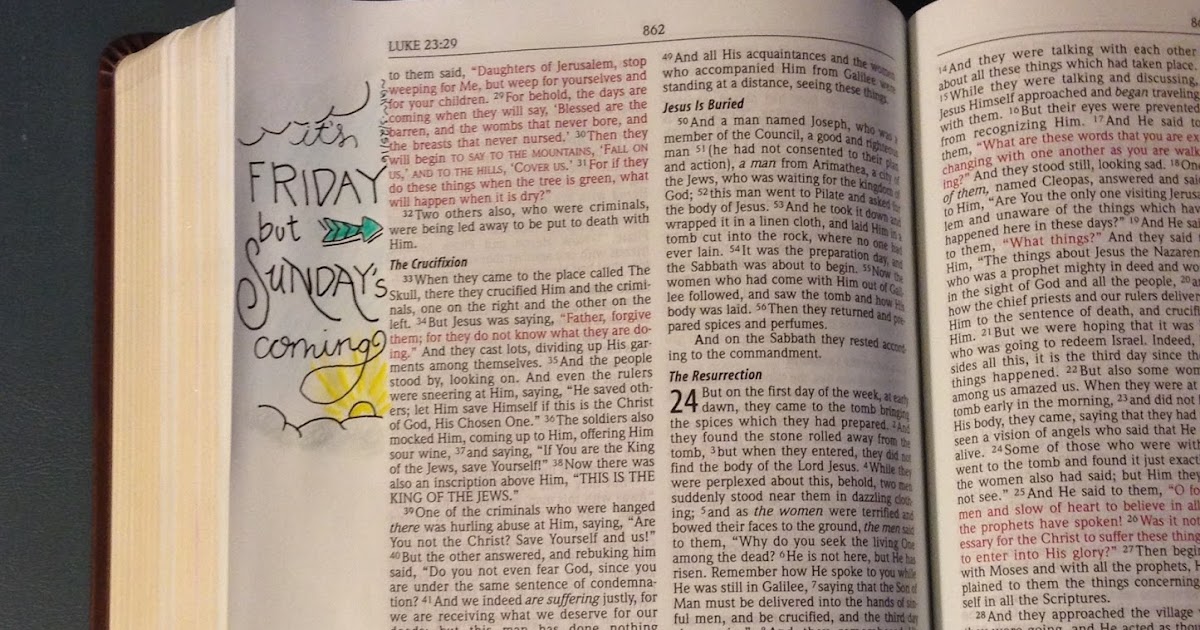 it's
FRIDAY
but
SUNDAY's
coming
LUKE 23:29
862
to them said, “Daughters of Jerusalem, stop
weeping for Me, but weep for yourselves and
for your children. 29For behold, the days are
coming when they will say, ‘Blessed are the
barren, and the wombs that never bore, and
the breasts that never nursed.’ 30Then they
will begin TO SAY TO THE MOUNTAINS, ‘FALL ON
US,’ AND TO THE HILLS, ‘COVER US.’ 31For if they
do these things when the tree is green, what
will happen when it is dry?”
32Two others also, who were criminals,
were being led away to be put to death with
Him.
The Crucifixion
33When they came to the place called The
Skull, there they crucified Him and the crimi-
nals, one on the right and the other on the
left. 34But Jesus was saying, “Father, forgive
them; for they do not know what they are do-
ing.” And they cast lots, dividing up His gar-
ments among themselves. 35And the people
stood by, looking on. And even the rulers
were sneering at Him, saying, “He saved oth-
ers; let Him save Himself if this is the Christ
of God, His Chosen One.” 36The soldiers also
mocked Him, coming up to Him, offering Him
sour wine, 37and saying, “If You are the King
of the Jews, save Yourself!” 38Now there was
also an inscription above Him, “THIS IS THE
KING OF THE JEWS.”
39One of the criminals who were hanged
there was hurling abuse at Him, saying, “Are
You not the Christ? Save Yourself and us!”
40But the other answered, and rebuking him
said, “Do you not even fear God, since you
are under the same sentence of condemna-
tion? 41And we indeed are suffering justly, for
we are receiving what we deserve for our
49And all His acquaintances and the women
who accompanied Him from Galilee were
standing at a distance, seeing these things.
Jesus Is Buried
50And a man named Joseph, who was a
member of the Council, a good and righteous
man 51(he had not consented to their plan
and action), a man from Arimathea, a city of
the Jews, who was waiting for the kingdom of
God; 52this man went to Pilate and asked for
the body of Jesus. 53And he took it down and
wrapped it in a linen cloth, and laid Him in a
tomb cut into the rock, where no one had
ever lain. 54It was the preparation day, and
the Sabbath was about to begin. 55Now the
women who had come with Him out of Gali-
lee followed, and saw the tomb and how His
body was laid. 56Then they returned and pre-
pared spices and perfumes.
And on the Sabbath they rested accord-
ing to the commandment.
The Resurrection
24 But on the first day of the week, at early
dawn, they came to the tomb bringing
the spices which they had prepared. 2And
they found the stone rolled away from the
tomb, 3but when they entered, they did not
find the body of the Lord Jesus. 4While they
were perplexed about this, behold, two men
suddenly stood near them in dazzling cloth-
ing; 5and as the women were terrified and
bowed their faces to the ground, the men said
to them, “Why do you seek the living One
among the dead? 6He is not here, but He has
risen. Remember how He spoke to you while
He was still in Galilee, 7saying that the Son of
Man must be delivered into the hands of sin-
ful men, and be crucified, and the third day
14And they were talking with each other
about all these things which had taken place.
15While they were talking and discussing,
Jesus Himself approached and began traveling
with them. 16But their eyes were prevented
from recognizing Him. 17And He said to
them, “What are these words that you are ex-
changing with one another as you are walk-
ing?” And they stood still, looking sad. 18One
of them, named Cleopas, answered and said
to Him, “Are You the only one visiting Jerusa-
lem and unaware of the things which have
happened here in these days?” 19And He said
to them, “What things?” And they said
Him, “The things about Jesus the Nazarene
who was a prophet mighty in deed and
in the sight of God and all the people, 20
how the chief priests and our rulers
Him to the sentence of death, and
Him. 21But we were hoping that it was
who was going to redeem Israel. Indeed,
sides all this, it is the third day since
things happened. 22But also some
among us amazed us. When they were at
tomb early in the morning, 23and did not
His body, they came, saying that they had
seen a vision of angels who said that He
alive. 24Some of those who were with
went to the tomb and found it just
the women also had said; but Him they
not see.” 25And He said to them, “O
men and slow of heart to believe in all
the prophets have spoken! 26Was it not
essary for the Christ to suffer these things
to enter into His glory?” 27Then
with Moses and with all the prophets,
plained to them the things concerning
self in all the Scriptures.
28And they approached the village